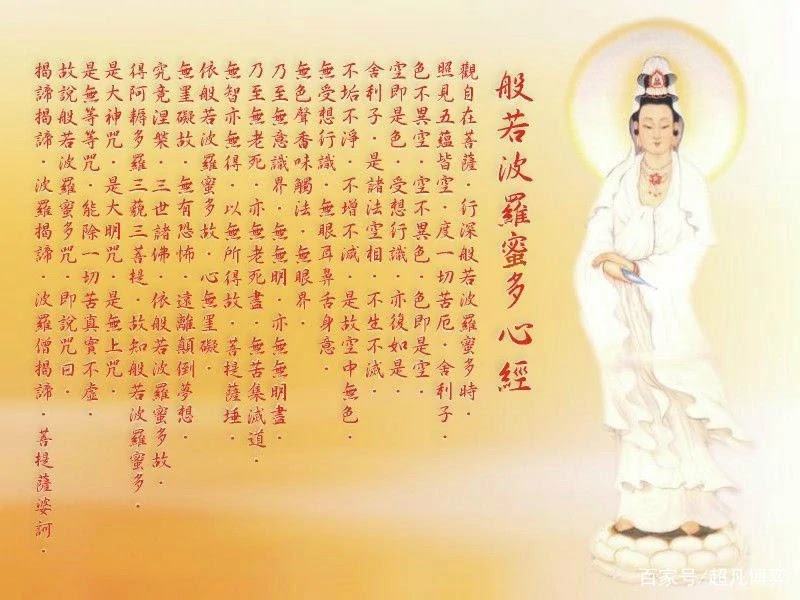 般若波羅蜜多心經
觀自在菩薩．行深般若波羅蜜多時．
照見五蘊皆空．度一切苦厄．舍利子．
色不異空．空不異色．色即是空．
空即是色．受想行識．亦復如是．
舍利子．是諸法空相．不生不滅．
不垢不淨．不增不減．是故空中無色．
無受想行識．無眼耳鼻舌身意．
無色聲香味觸法．無眼界．
乃至無意識界．無無明．亦無無明盡．
乃至無老死．亦無老死盡．無苦集滅道．
無智亦無得．以無所得故．菩提薩埵．
依般若波羅蜜多故．心無罣礙．
無罣礙故．無有恐怖．遠離顛倒夢想．
究竟涅槃．三世諸佛．依般若波羅蜜多故．
得阿耨多羅三藐三菩提．故知般若波羅蜜多．
是大神咒．是大明咒．是無上咒．
是無等等咒．能除一切苦真實不虛．
故說般若波羅蜜多咒．即說咒曰．
揭諦揭諦．波羅揭諦．波羅僧揭諦．菩提薩婆訶．
百家号/超凡